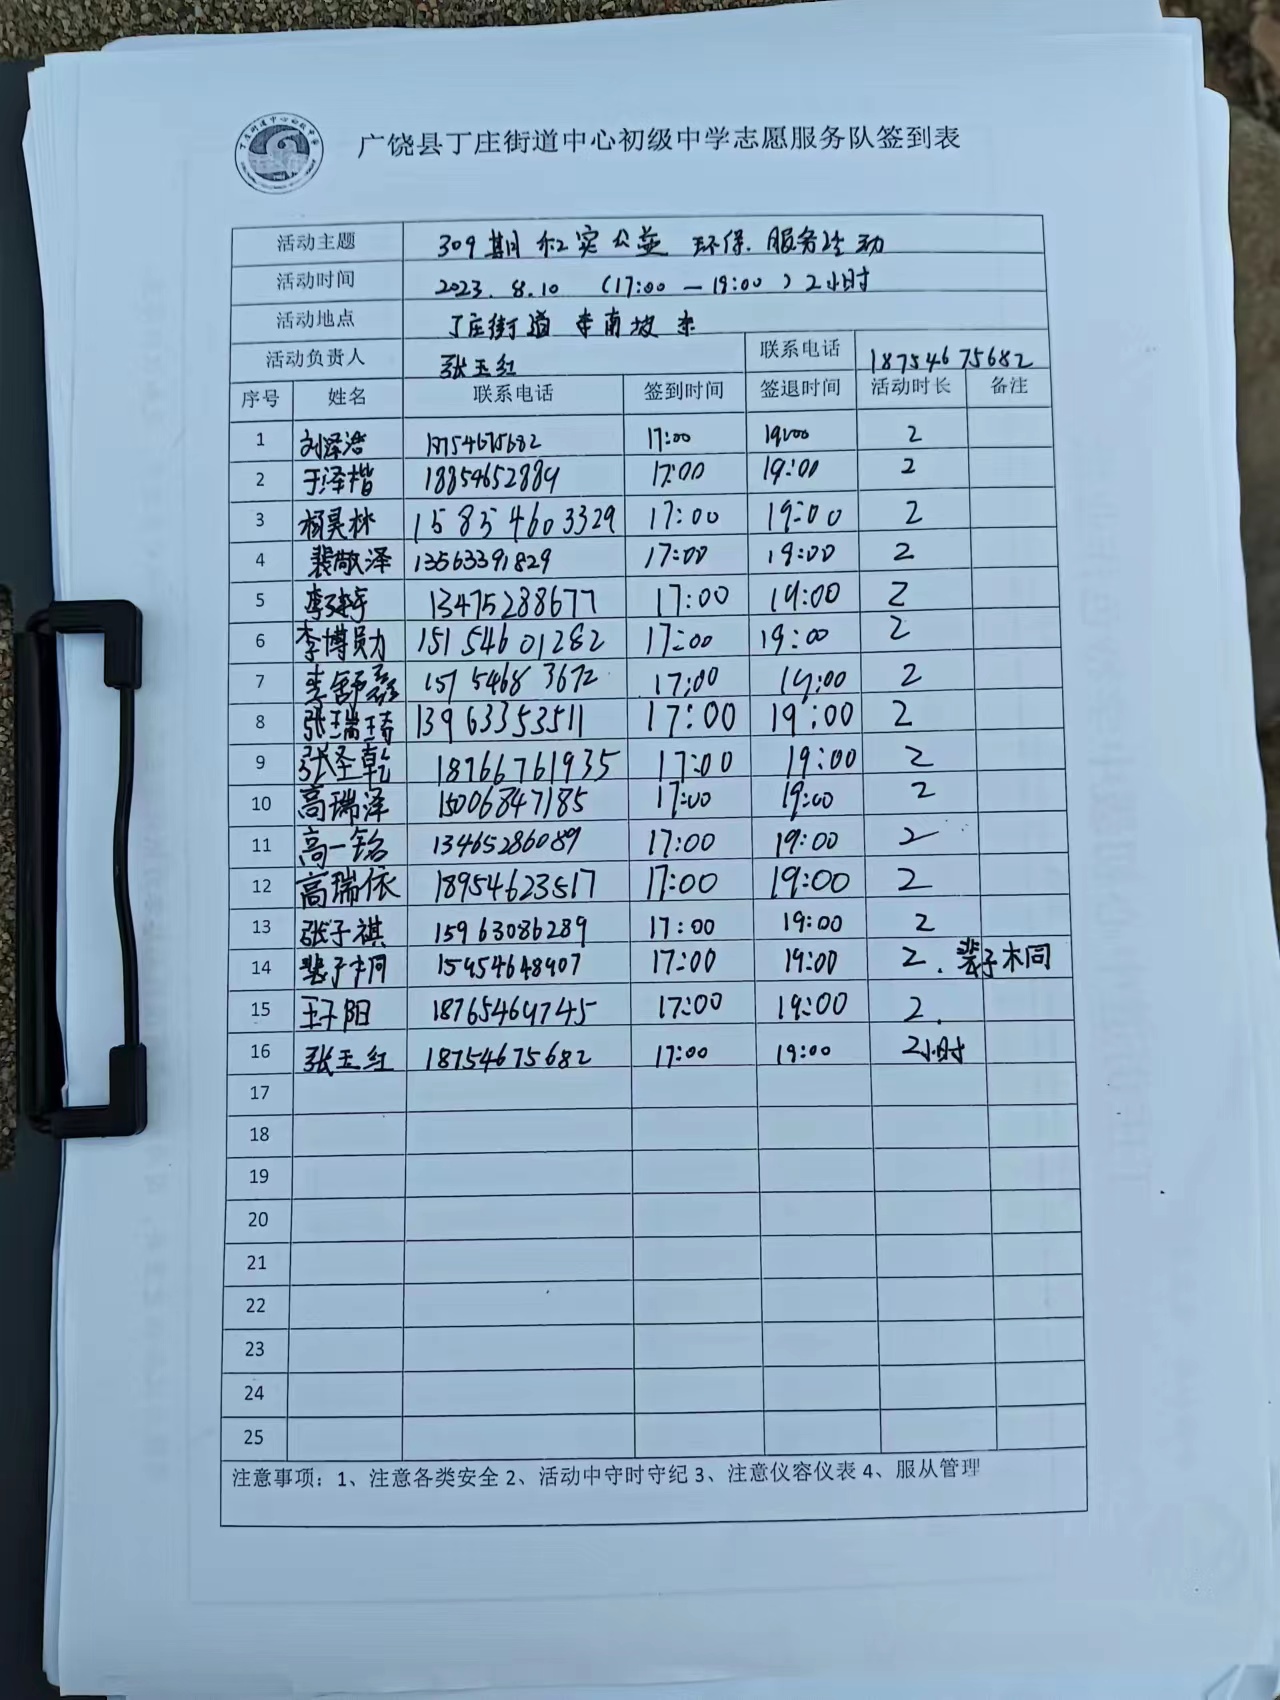 广饶县丁庄街道中心初级中学志愿服务队签到表
活动主题 309期 红实公益 环保.服务活动
活动时间 2023.8.10 (17:00—19:00)2小时
活动地点 丁庄街道 李南坡 东
活动负责人 张玉红 联系电话 18754675682
序号 姓名 联系电话 签到时间 签退时间 活动时长 备注
1 刘泽浩 18754675682 17:00 19:00 2
2 于泽楷 18854652889 17:00 19:00 2
3 杨昊林 158354603329 17:00 19:00 2
4 裴敬泽 13563391829 17:00 19:00 2
5 13475288677 17:00 19:00 2
6 李博勛 15154601282 17:00 19:00 2
7 李舒磊 15754683672 17:00 19:00 2
8 张瑞琦 13963353511 17:00 19:00 2
9 张圣乾 18766761935 17:00 19:00 2
10 高瑞泽 15006847185 17:00 19:00 2
11 高一铭 13465286089 17:00 19:00 2
12 高瑞依 18954623517 17:00 19:00 2
13 张子祺 15963086289 17:00 19:00 2
14 裴子桐 15954648907 17:00 19:00 2. 裴子木同
15 王子阳 18765469745 17:00 19:00 2.
16 张玉红 18754675682 17:00 19:00 2小时
17
18
19
20
21
22
23
24
25
注意事项：1、注意各类安全 2、活动中守时守纪 3、注意仪容仪表 4、服从管理